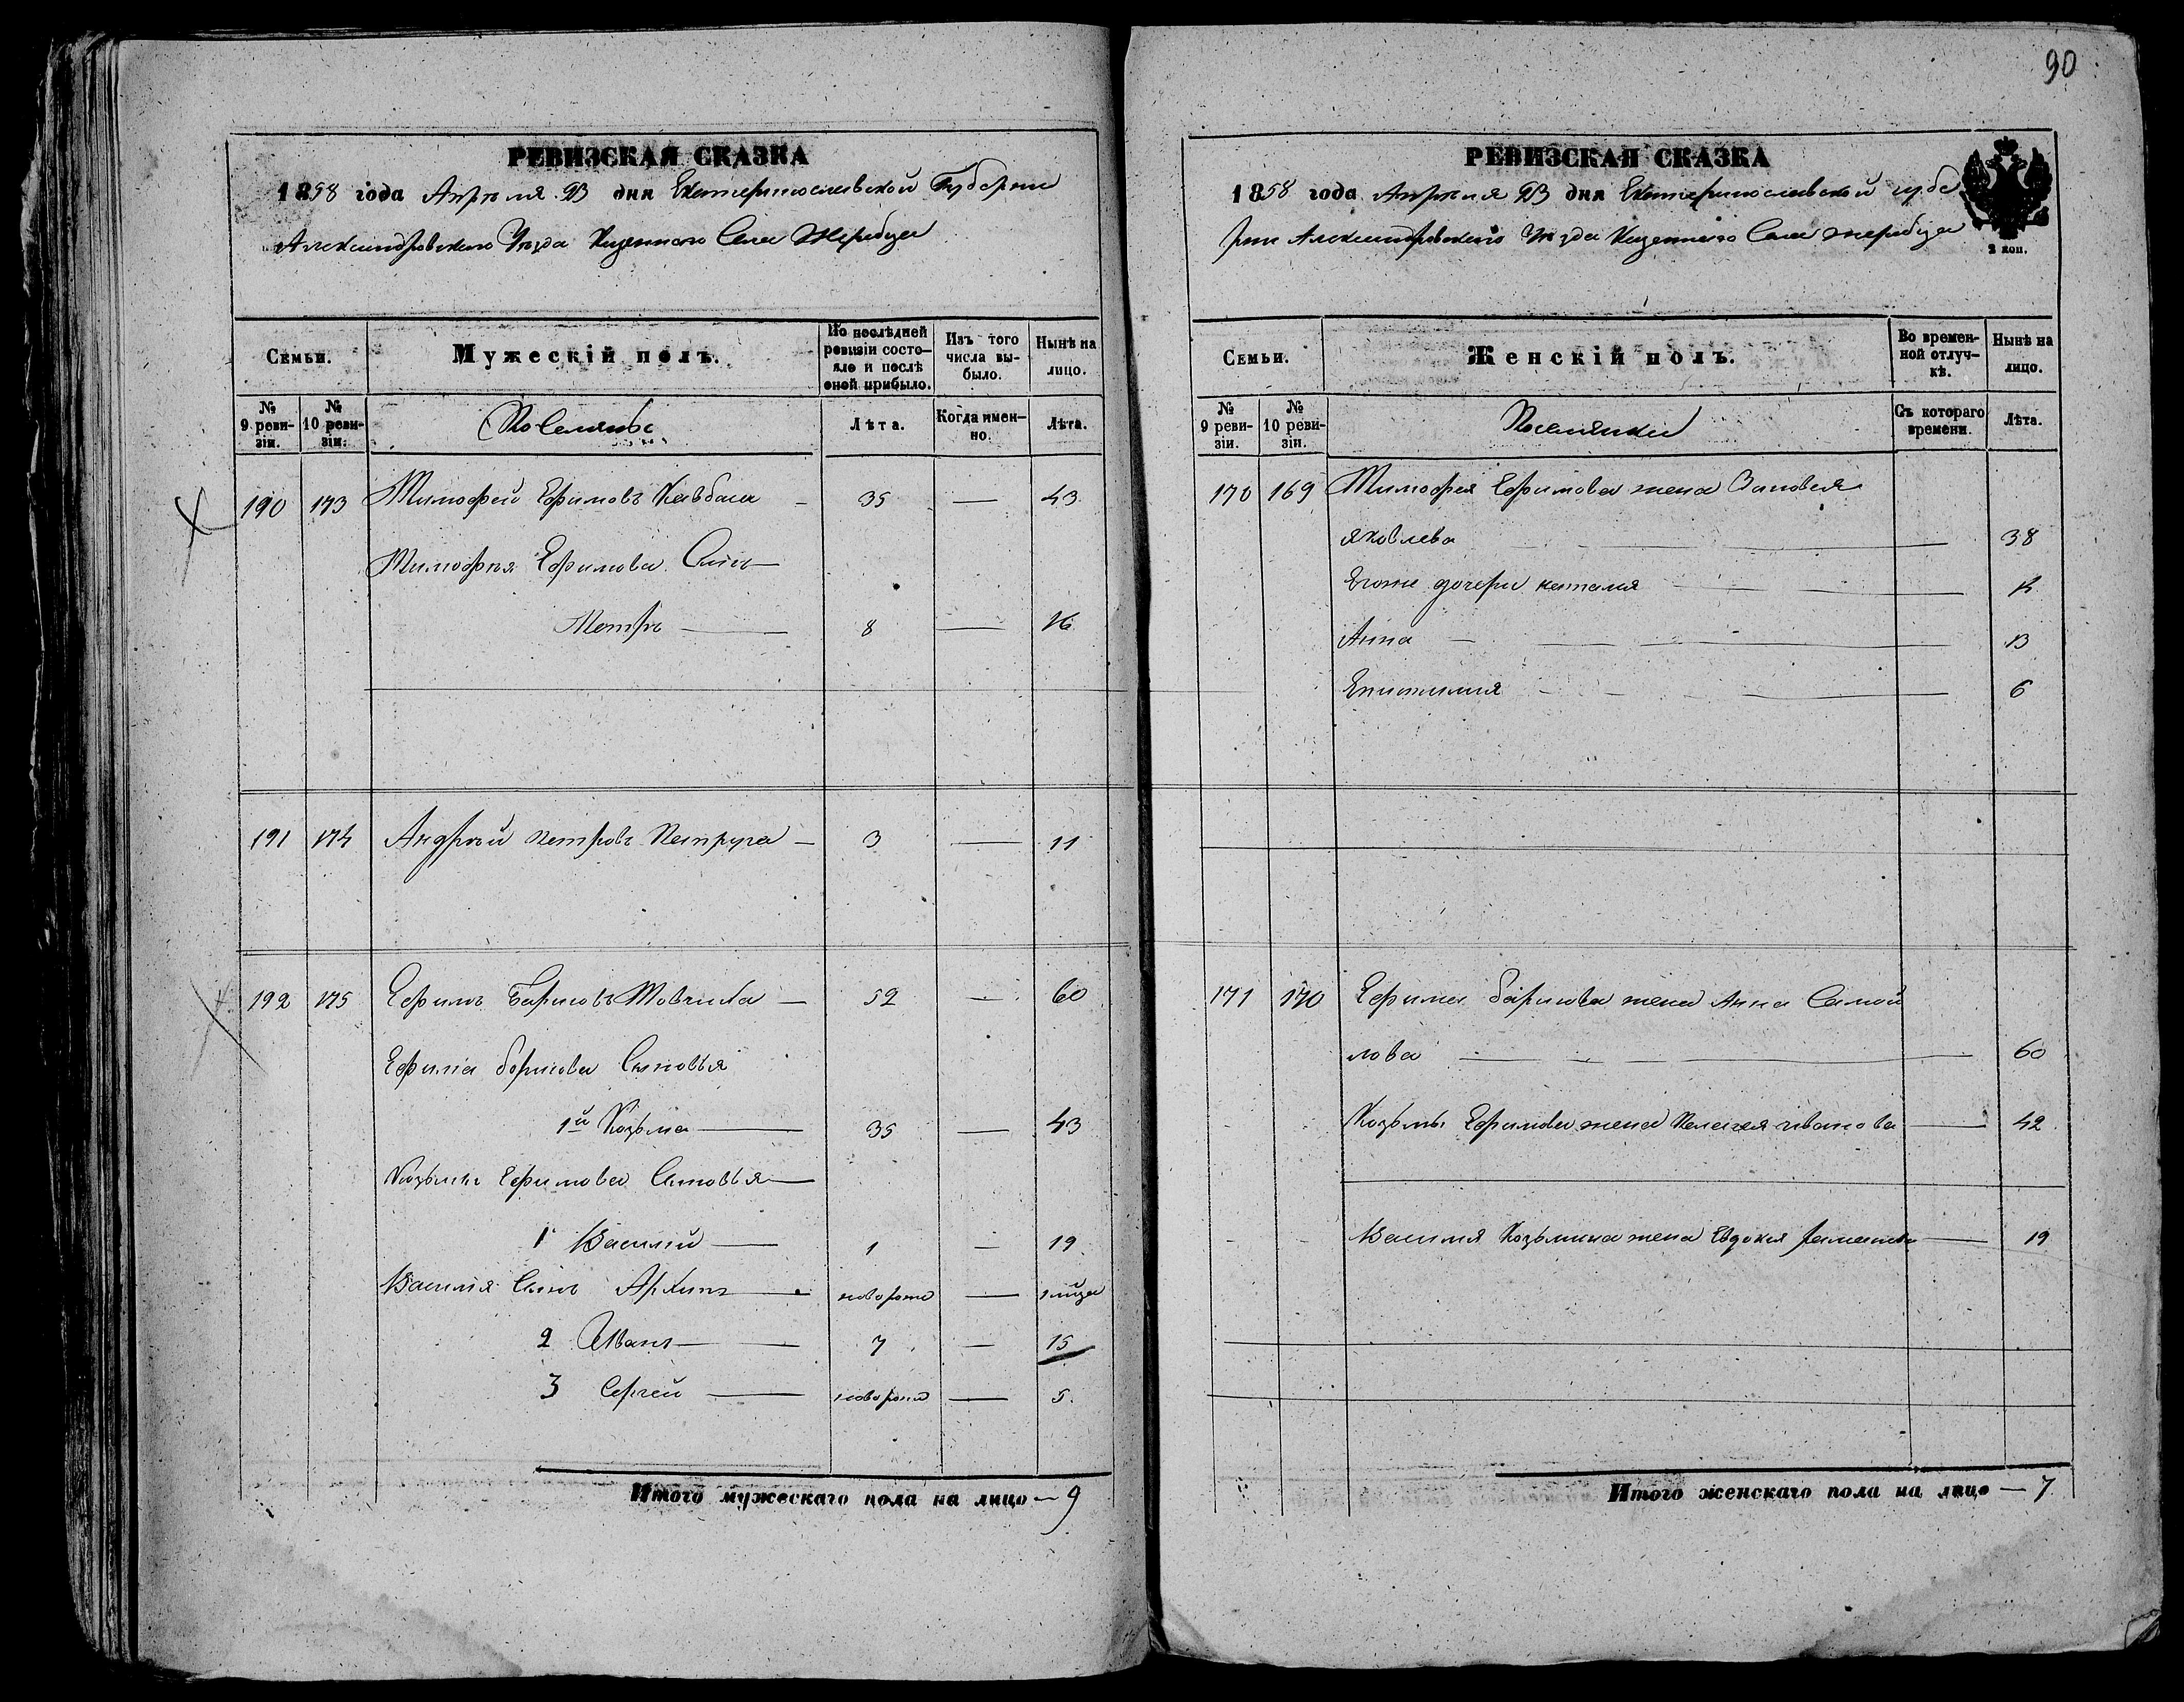 РЕВИЗСКАЯ СКАЗКА
1858 года Апреля 23 дня Екатеринославской Губернии
Александровского Уезда Казенного Села Жеребца
Семьи.
Мужескій полъ.
По послѣдней ревизіи состояло и послѣ оной прибыло.
Изъ того числа выбыло.
Нынѣ на лицо.
№ 9 ревизіи.
№ 10 ревизіи.
Поселянъ
Лѣта.
Когда именно.
Лѣта.
190 173 Тимофей Ефимовъ Ковбаса — 35 — 43
Тимофея Ефимова Сынъ
Петръ — 8 — 16
191 174 Андрѣй Петровъ — 3 — 11
192 175 Ефимъ Барисовъ Товчика — 52 — 60
Ефима борисова Сыновья
1й Козьма — 35 — 43
Козьмы Ефимова Сыновья —
1 Василій — 1 — 19
Василія Сынъ Архипъ — новорож —
2 Иванъ — 7 — 15
3 Сергей — новорож — 5.
Итого мужескаго пола на лицо — 9
90
РЕВИЗСКАЯ СКАЗКА
1858 года Апреля 23 дня Екатеринославской губе
рнии Александровского Уезда Казенного Села жеребца
2 коп.
Семьи.
Женскій полъ.
Во временной отлучкѣ.
Нынѣ на лицо.
№ 9 ревизіи.
№ 10 ревизіи.
Поселянки
Съ котораго времени.
Лѣта.
170 169 Тимофея Ефимова жена Зиновея
яковлева — 38
Егоже дочери наталия —
Анна — 13
Епистимия — 6
171 170 Ефима барисова жена Анна Самой
лова — 60
Козьмы Ефимова жена Пелагея иванова — 42
Василия Козьмина жена Евдокия — 19
Итого женскаго пола на лицо — 7